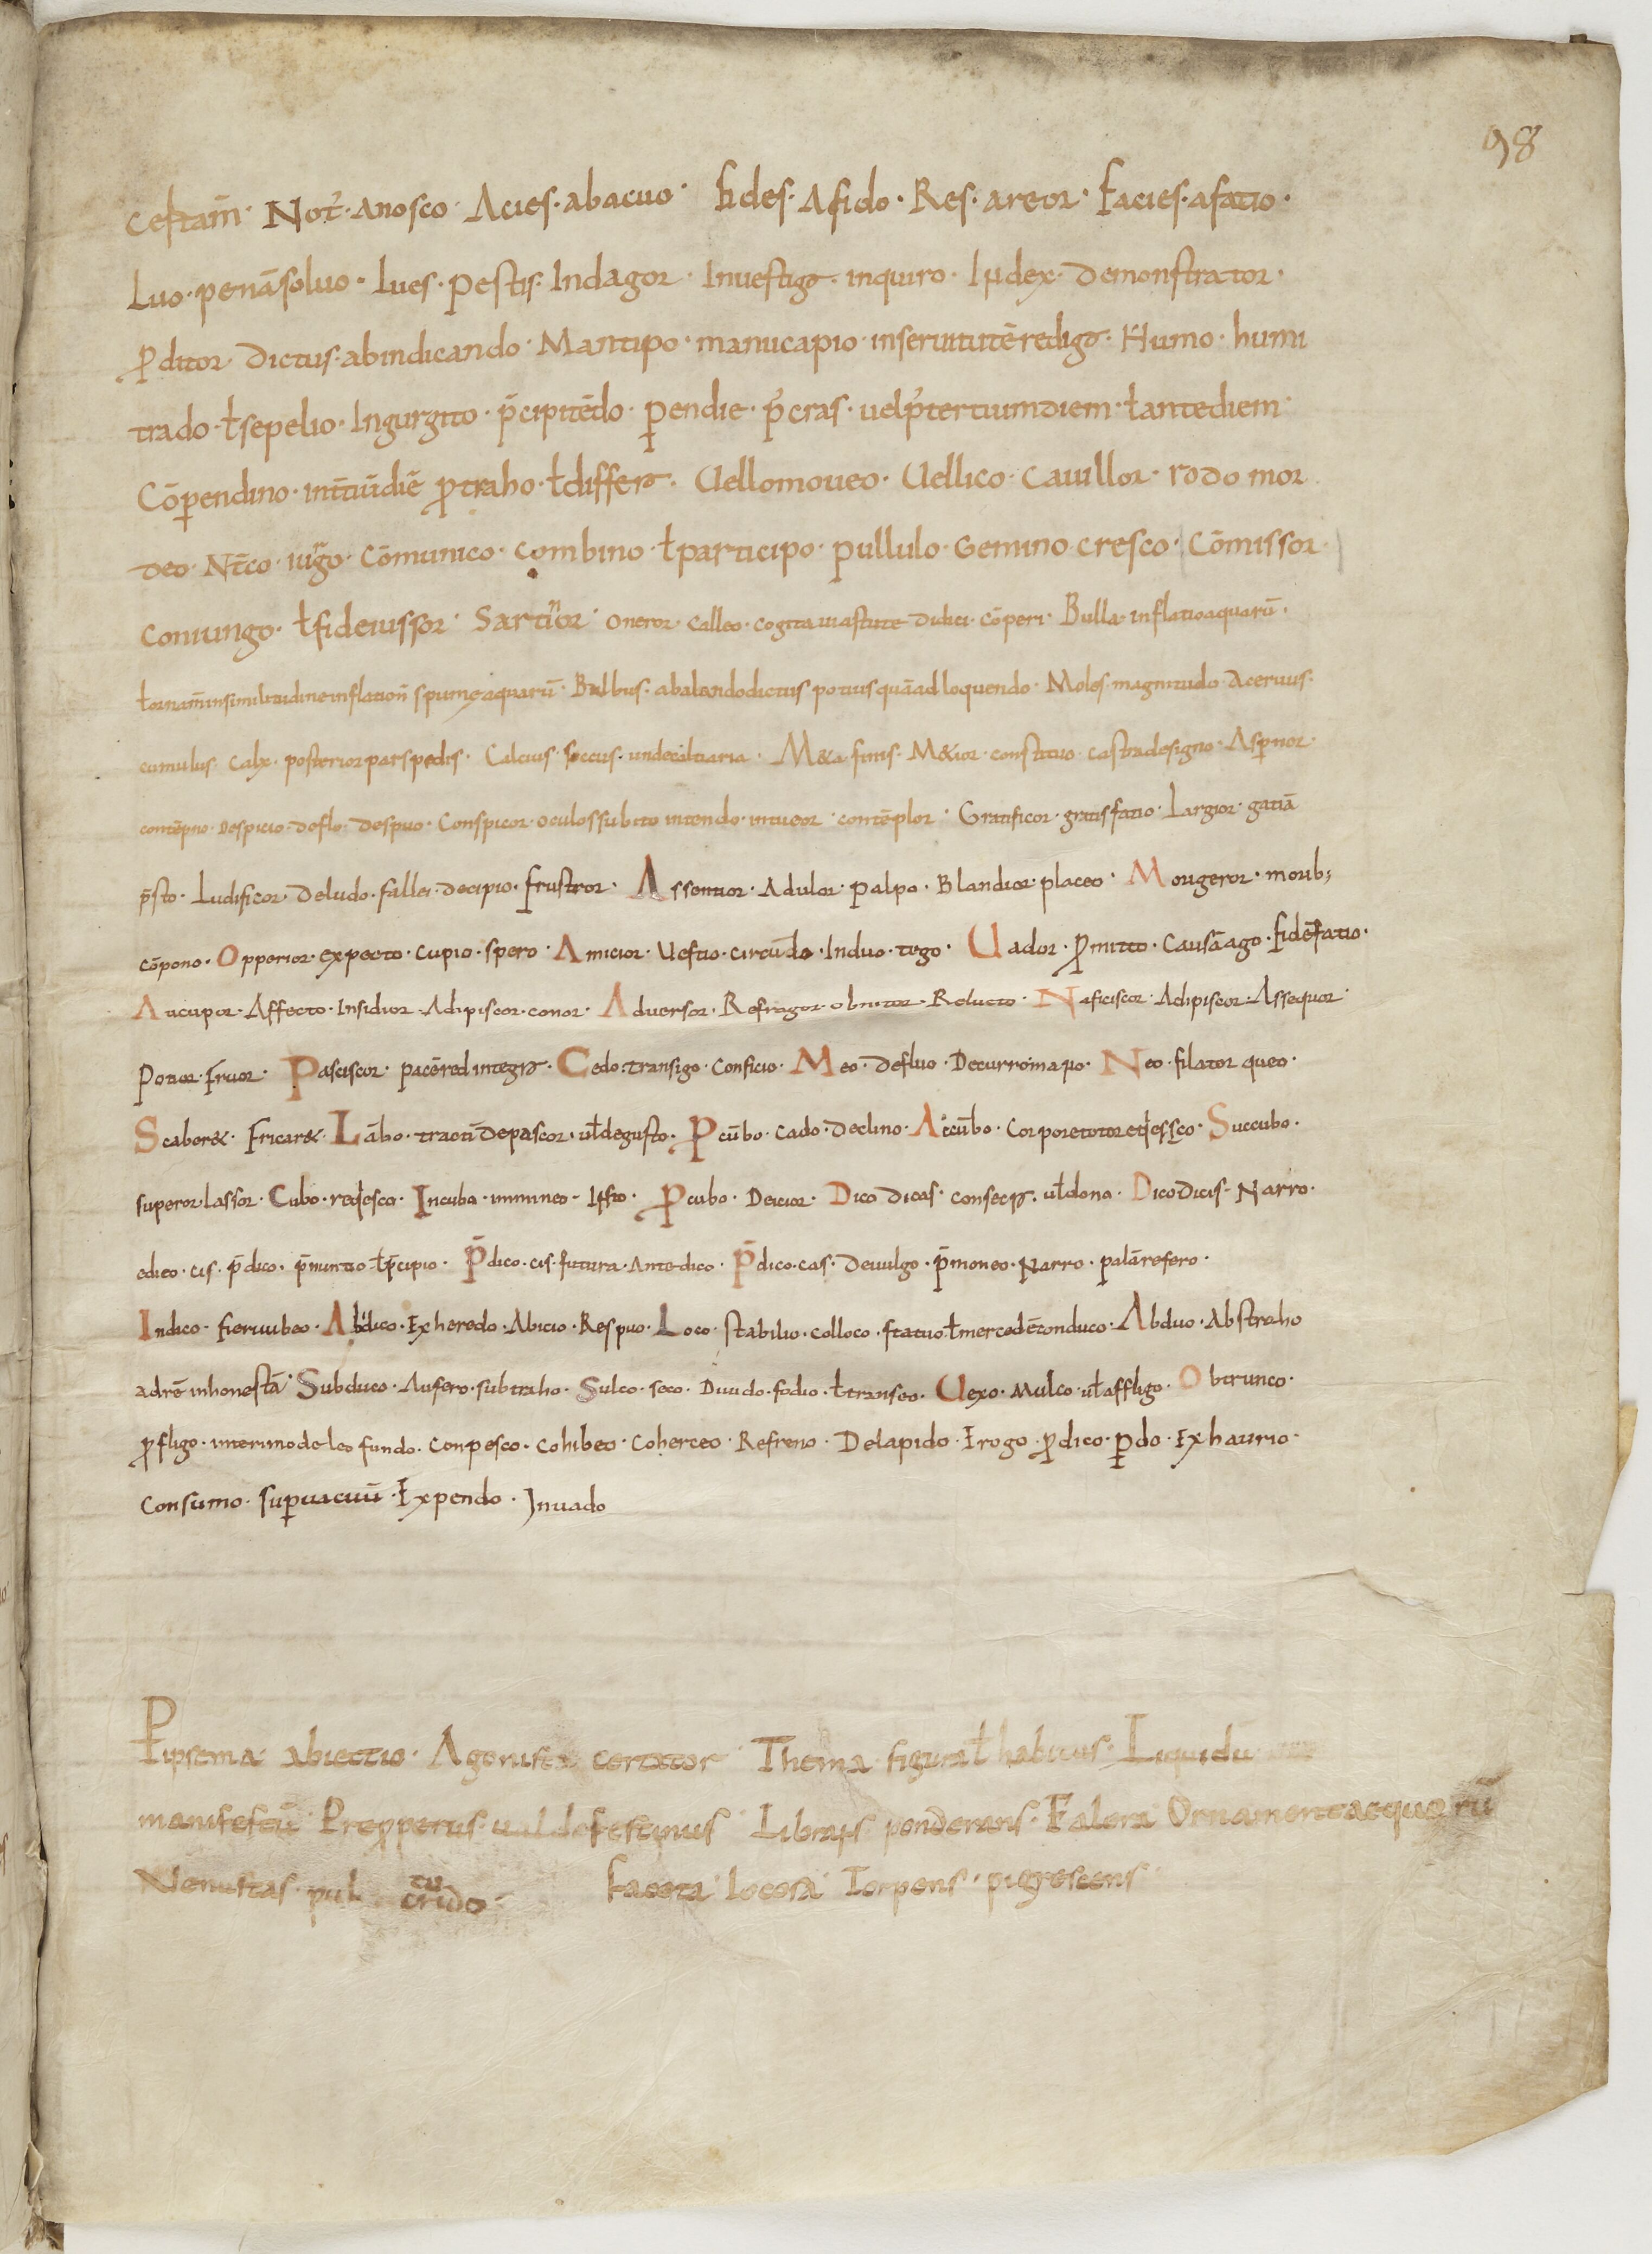 98
certam̄· Not̄· anosco· Acies· abacuo· Fides· Afido· Res· areor· Facies· afatio·
Luo· penā soluo· Lues· pestis· Indagor· Inuestigo· inquiro· Iudex· demonstrator·
ꝓditor· dictus· abindicando· Mantipo· manucapio· inseruitutē redigo· Humo· humi
trado· ł sepelio· Ingurgito· p̄cipitēdo· ꝑendie· p̾ cras· uel p̾ tertium diem· ł antediem·
Cōꝑendino· int̄tiū diē ꝓtraho· ł differo· Uello moueo· Uellico· Cauillor· rodo mor
deo· Nt̄co· iurgo· Cōmunico· Combino· ł participo· pullulo· Gemino cresco· Cōmissor·
Coniungo· ł fideiussor· Sartior· Oneror· Calleo· Cogitaui astute didici· cōperi· Bulla· inflatio aquarū·
ł ornam̄ in similitudine inflation̄ spume aquarū· Balbus· a balando dictus potius quā ad loquendo· Moles· magnitudo· Aceruus·
cumulus· Calx· posterior pars pedis· Calcius· soccus· unde caltiaria· M&a· finis· M&ior· constituo· castra designo· Asꝑnor·
contēpno· Despicio· deflo· despuo· Conspicor· oculos subito intendo· intueor· contēplor· Gratificor· gratis fatio· Largior· gatiā
p̄sto· Ludificor· deludo· fallo· decipio· frustror· Assentior· Adulor· palpo· Blandior· placeo· Morigeror· morib;
cōpono· Opperior· expecto· cupio· spero· Amicior· Uestio· circūdo· Induo· tego· Uador· ꝓmitto· Causā ago· fidē fatio·
Aucupor· Affecto· Insidior· Adipiscor· conor· Aduersor· Refragor· obnitor· Relucto· Naficiscor· Adipiscor· Assequor·
Potior· Fruor· Pasciscor· pacē redintegro· Cedo· transigo· Conficio· Meo· defluo· Decurro· Neo· filator queo·
Scabor&· Fricar&· Lābo· tractī depascor· uł degusto· ꝓcūbo· cado· declino· Accūbo· Corpore· Succubo·
superor· lassor· Cubo· reqiesco· Incubo· immineo· Isto· ꝓcubo· Deicior· Dico dicas· consecro· uł dono· Dico dicis· Narro·
edico· cis· p̄dico· p̄nuntio· ł p̄cipio· P̄dico· cis· futura· Antedico· P̄dico· cas· deuulgo· p̄moneo· Narro· palā refero·
Indico· fieri iubeo· Abdico· Exheredo· Abicio· Respuo· Loco· stabilio· colloco· statuo· ł mercedē conduco· Abduo· Abstraho
adrē inhonestā· Subduco· Aufero· subtraho· Sulco· seco· Diuido· fodio· ł transeo· Uexo· Mulco· uł affligo· Obtrunco·
ꝓfligo· interimo deleo fundo· Conpesco· Cohibeo· Coherceo· Refreno· Delapido· Erogo· ꝓdico· ꝑdo· Exhaurio·
Consumo· suꝑuacuū· Expendo· Inuado
Pipsema· abiectio· Agonista certator· Thema· figura ł habitus· Liquidu
manifestū· Preꝓperus· ualde festinus· Librans· ponderans· Falera Ornamenta equorū
Venustas· pul cridotu· Faceta· Iocosa· Torpens· pigrescens·